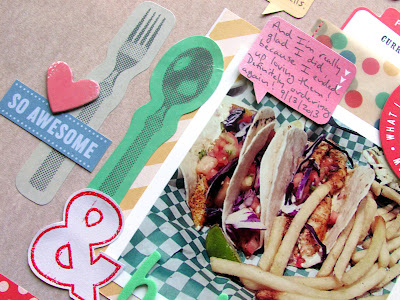 ells.
And I'm really
glad I did
because I ended
up loving them!
Definitely ordering
again! 9/13/2013
CURR
WHAT I
SO AWESOME
&
h